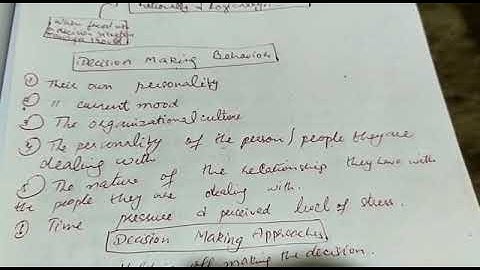 rationally & logically
when faced with
decision
Decision Making Behaviors
① Their own personality
② 〃 current mood
③ The organizational culture
④ The personality of the person / people they are
dealing with
⑤ The nature of the relationship they have with
the people they are dealing with.
Time pressure & perceived level of stress.
Decision Making Approaches
off making the decision.